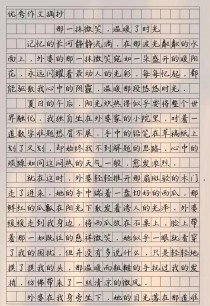 优秀作文摘抄
那一抹微笑，温暖了时光
记忆的长河静静流淌，在那波光粼粼的水
面上，外婆的那一抹微笑宛如一朵盛开的暖阳
花，永远闪耀着最动人的光彩，每每忆起，都
能驱散我心中的阴霾，温暖那段悠悠时光。
夏日的午后，阳光炽热得似乎要将整个世
界融化，我独自坐在外婆家的小院里，对着一
道数学难题愁眉不展，手中的铅笔在草稿纸上
划了又划，却始终找不到解题的思路，心中的
烦躁如同这闷热的天气一般，愈发浓烈。
就在这时，外婆轻轻推开那扇斑驳的木门
走了进来，她的手中端着一盘切好的西瓜，那
鲜红的瓜瓤在阳光下散发着诱人的光泽，外婆
缓缓走到我身边，将西瓜放在石桌上，脸上带
着那一如既往的慈祥微笑，她似乎一眼就看穿
了我的困扰，但并没有多说什么，只是轻轻地
摸了摸我的头，那温暖而粗糙的手抚过我的发
梢，仿佛带来了一丝清凉的微风。
外婆在我身旁坐下，她的目光落在那道难